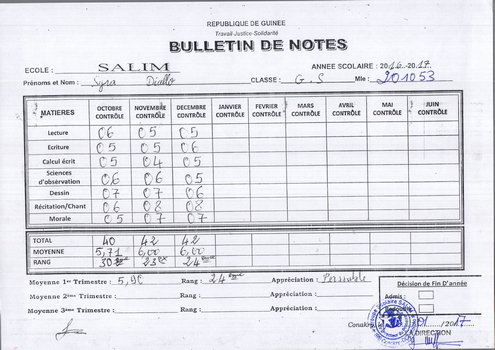 REPUBLIQUE DE GUINEE
Travail-Justice-Solidarité
BULLETIN DE NOTES
ECOLE : SALIM ANNEE SCOLAIRE : 2016 -2017
Prénoms et Nom : Syra Diallo CLASSE : G.S Mle : 201053
MATIERES OCTOBRE CONTRÔLE NOVEMBRE CONTRÔLE DECEMBRE CONTRÔLE JANVIER CONTRÔLE FEVRIER CONTRÔLE MARS CONTRÔLE AVRIL CONTRÔLE MAI CONTRÔLE JUIN CONTRÔLE
Lecture 06 05 05
Ecriture 05 05 06
Calcul écrit 05 04 05
Sciences d'observation 06 06 05
Dessin 07 07 06
Récitation/Chant 06 08 08
Morale 05 07 07
TOTAL 40 42 42
MOYENNE 5,71 6,00 6,00
RANG 30 23 24
Moyenne 1er Trimestre : 5,90 Rang : 24 Appréciation : Passable
Moyenne 2ème Trimestre : Rang : Appréciation :
Moyenne 3ème Trimestre : Rang : Appréciation :
Décision de Fin D'année
Admis :
Conakry, 01 / 2017
LA DIRECTION